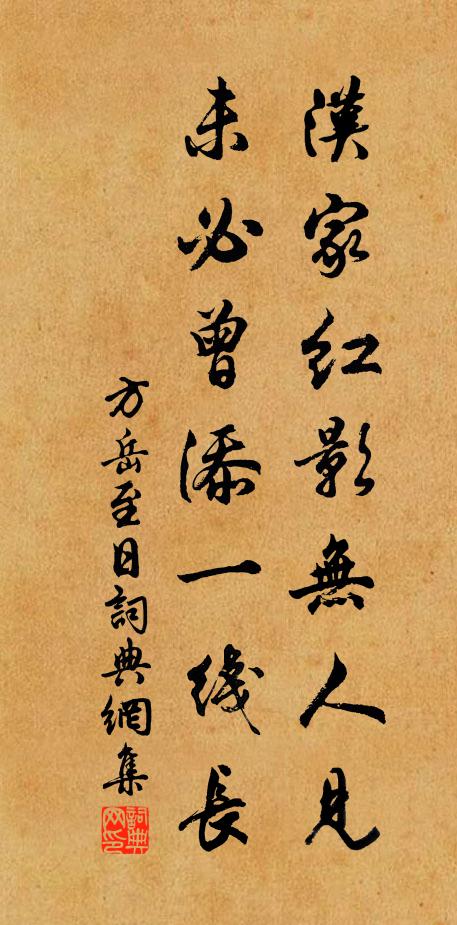 漢家紅影無人見
未必曾添一綫長
方岳至日詞典網集
詞典網印